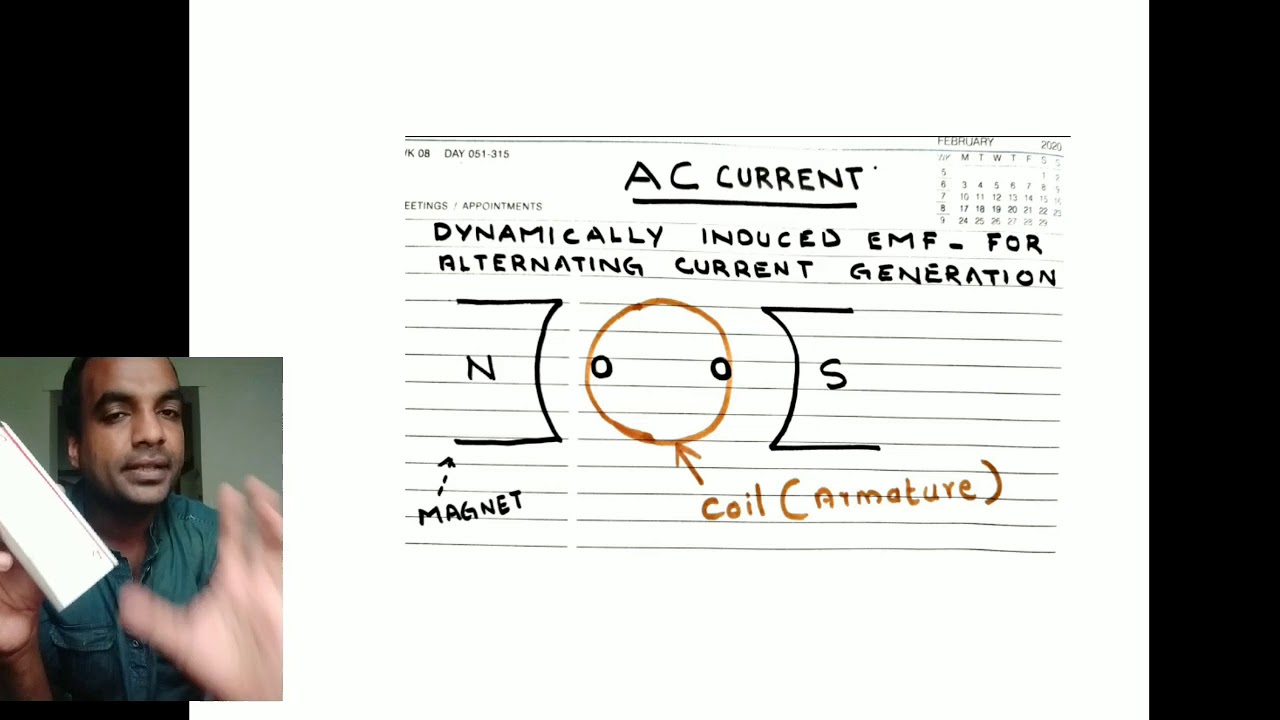 WK 08 DAY 051-315
FEBRUARY 2020
WK M T W T F S S
5 1 2
6 3 4 5 6 7 8 9
7 10 11 12 13 14 15 16
8 17 18 19 20 21 22 23
9 24 25 26 27 28 29
AC CURRENT
EETINGS / APPOINTMENTS
DYNAMICALLY INDUCED EMF - FOR
ALTERNATING CURRENT GENERATION
N
S
MAGNET
Coil (Armature)